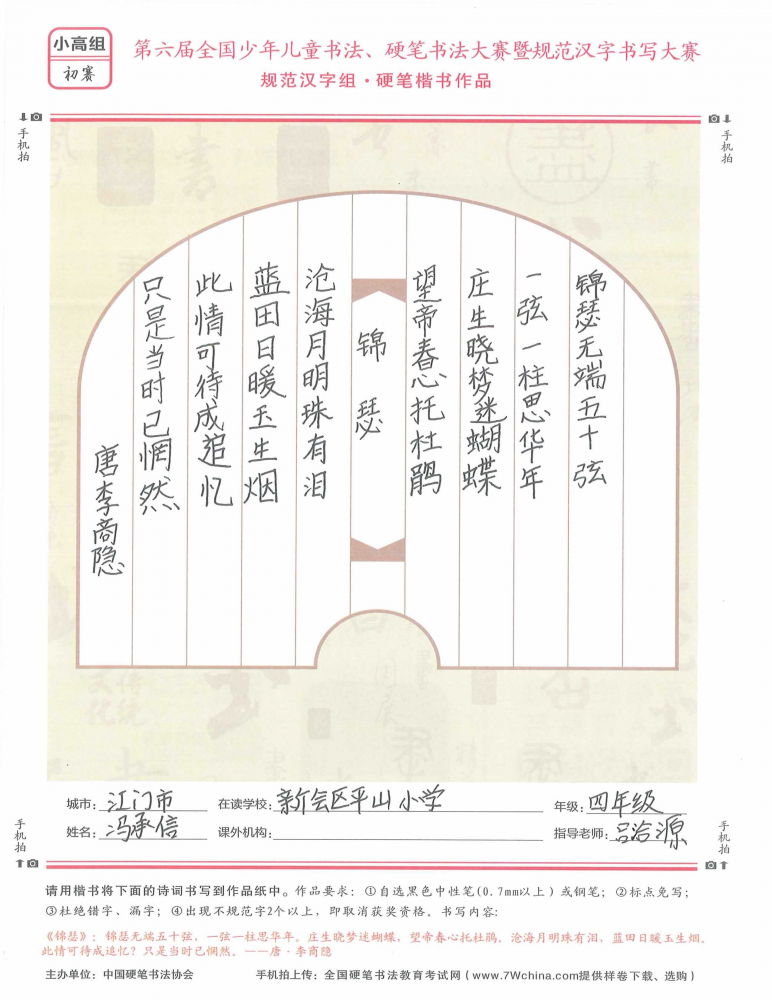 小高组
初赛
第六届全国少年儿童书法、硬笔书法大赛暨规范汉字书写大赛
规范汉字组·硬笔楷书作品
手机拍
手机拍
锦瑟无端五十弦
一弦一柱思华年
庄生晓梦迷蝴蝶
望帝春心托杜鹃
锦瑟
沧海月明珠有泪
蓝田日暖玉生烟
此情可待成追忆
只是当时已惘然
唐李商隐
城市：江门市 在读学校：新会区平山小学 年级：四年级
姓名：冯承信 课外机构： 指导老师：吕洽源
手机拍
手机拍
请用楷书将下面的诗词书写到作品纸中。作品要求：①自选黑色中性笔(0.7mm以上）或钢笔；②标点免写；
③杜绝错字、漏字；④出现不规范字2个以上，即取消获奖资格。书写内容：
《锦瑟》：锦瑟无端五十弦，一弦一柱思华年。庄生晓梦迷蝴蝶，望帝春心托杜鹃。沧海月明珠有泪，蓝田日暖玉生烟。
此情可待成追忆？只是当时已惘然。——唐·李商隐
主办单位：中国硬笔书法协会 手机拍上传：全国硬笔书法教育考试网（www.7Wchina.com提供样卷下载、选购）